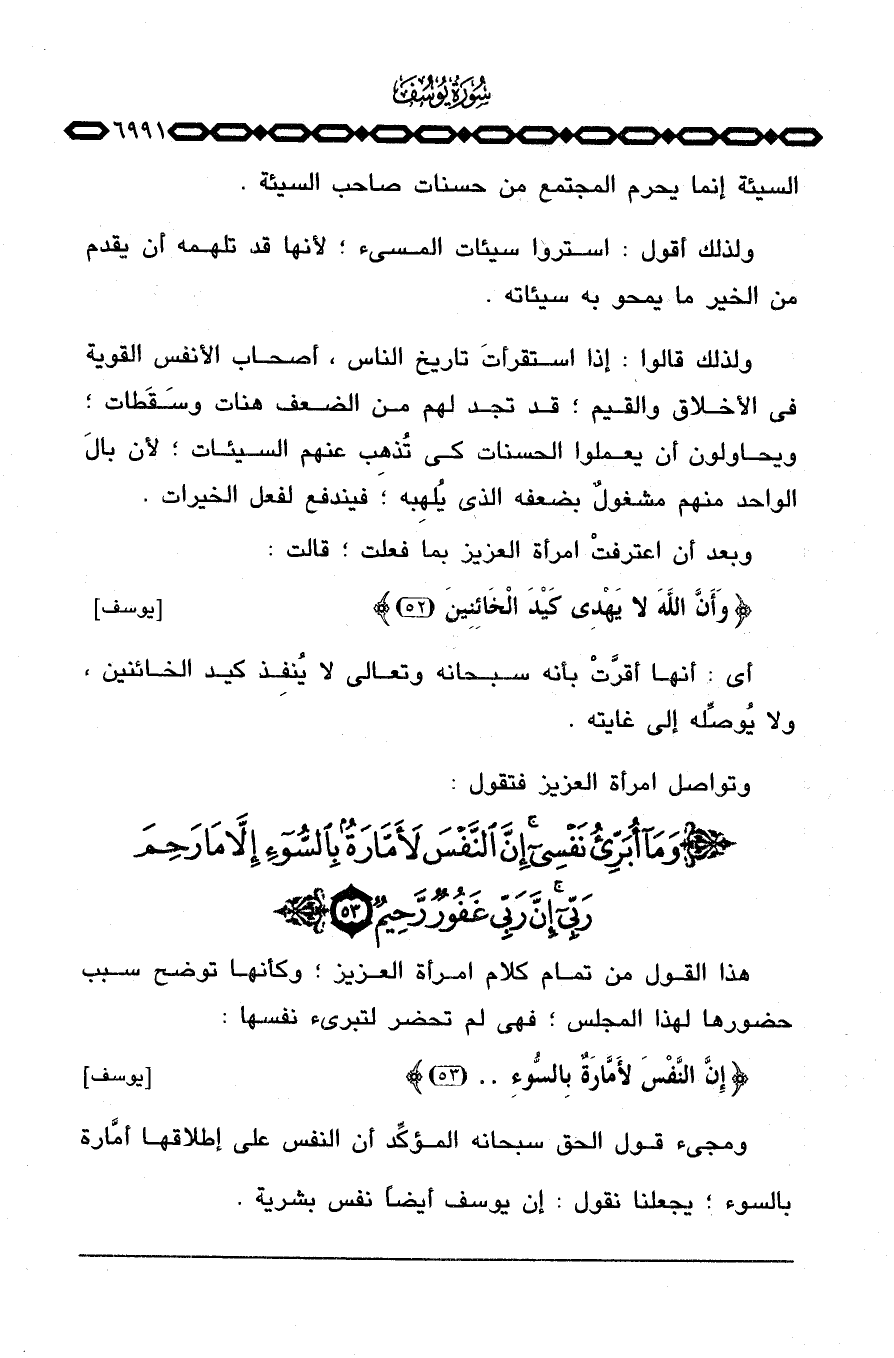 سُورَةُ يُوسُفَ
٦٩٩١
السيئة إنما يحرم المجتمع من حسنات صاحب السيئة .
ولذلك أقول : استروا سيئات المسىء ؛ لأنها قد تلهمه أن يقدم
من الخير ما يمحو به سيئاته .
ولذلك قالوا : إذا استقرأتَ تاريخ الناس ، أصحاب الأنفس القوية
فى الأخلاق والقيم ؛ قد تجد لهم من الضعف هنات وسَقَطات ؛
ويحاولون أن يعملوا الحسنات كى تُذهِب عنهم السيئات ؛ لأن بالَ
الواحد منهم مشغولٌ بضعفه الذى يُلهِبه ؛ فيندفع لفعل الخيرات .
وبعد أن اعترفتْ امرأة العزيز بما فعلت ؛ قالت :
﴿ وَأَنَّ اللَّهَ لا يَهْدِى كَيْدَ الْخَائِنِينَ (٥٢) ﴾ [يوسف]
أى : أنها أقرَّتْ بأنه سبحانه وتعالى لا يُنفِذ كيد الخائنين ،
ولا يُوصِّله إلى غايته .
وتواصل امرأة العزيز فتقول :
﴿ وَمَآ أُبَرِّئُ نَفْسِىٓ ۚ إِنَّ ٱلنَّفْسَ لَأَمَّارَةٌۢ بِٱلسُّوٓءِ إِلَّا مَا رَحِمَ
رَبِّىٓ ۚ إِنَّ رَبِّى غَفُورٌ رَّحِيمٌ ٥٣ ﴾
هذا القول من تمام كلام امرأة العزيز ؛ وكأنها توضح سبب
حضورها لهذا المجلس ؛ فهى لم تحضر لتبرىء نفسها :
﴿ إِنَّ النَّفْسَ لأَمَّارَةٌ بِالسُّوءِ .. (٥٣) ﴾ [يوسف]
ومجىء قول الحق سبحانه المؤكِّد أن النفس على إطلاقها أمَّارة
بالسوء ؛ يجعلنا نقول : إن يوسف أيضاً نفس بشرية .